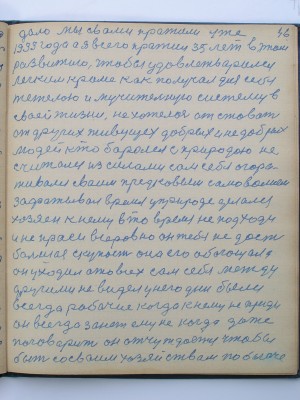 46
дало мы свами пражали уже
1933 года а я всего пражил 35 лет в том
развитию, чтобы удовлетварился
леским храме как получал для себя
тежелою и мучительную систему в
своей жизни, не хотелся от ставать
от других живущех добрых и недобрых
людей кто боролся с природою не
считался из силами сам себя
своим предковым самоволием
затрачивал время у природе делался
хозяен к нему в то время не подходи
и не праси всеровно он тебе не даст
большая скупость она его обогощала
он уходил а то вех сам себя между
другими не видел у него дни были
всегда рабочие когда к нему не приди
он всегда занет ему не когда даже
поговорить он отчуждается чтобы
быть со своим хозяйствам побогаче